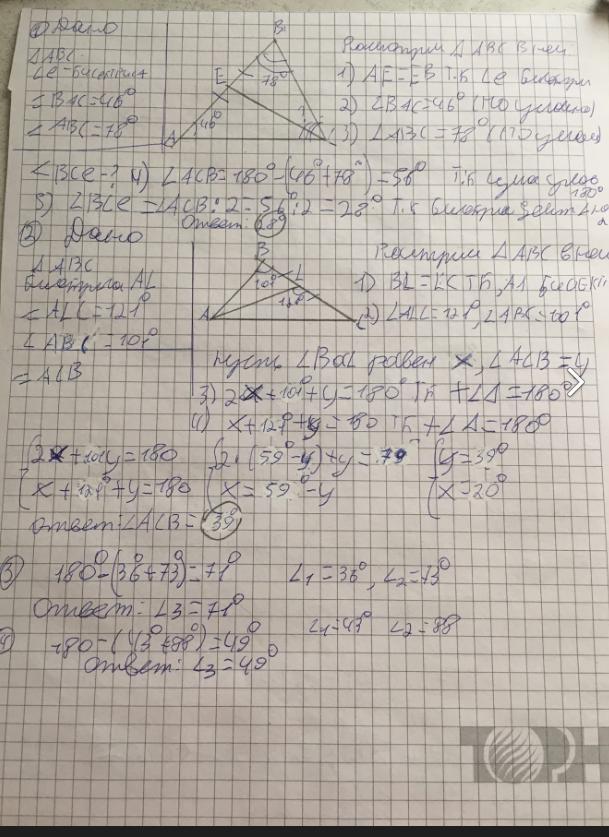 ① Дано
△ABC
Ce-биссектриса
∠BAC=46°
∠ABC=78°
∠BCe-?
B
E
78°
46°
A
Рассмотрим △ABC В ней
1) AE=EB т.к Ce
2) ∠BAC=46° (по условию)
3) ∠ABC=78° (по условию)
4) ∠ACB=180°-(46°+78°)=56° т.к сумма углов 180°
5) ∠BCe=∠ACB:2=56°:2=28° т.к
Ответ: 28°
② Дано
△ABC
биссектриса AL
∠ALC=121°
∠ABC=101°
∠ACB
B
101°
L
121°
A
C
△ABC в ней
1) BL=LC тк, AL
2) ∠ALC=121°, ∠ABC=101°
пусть ∠BaL равен x, ∠ACB=y
3) 2x+101°+y=180° тк +∠△=180°
4) x+121°+y=180 тк +∠△=180°
{2x+101y=180 {2·(59°-y)+y=79° {y=39°
{x+121°+y=180 {x=59°-y {x=20°
ответ: ∠ACB=39°
③ 180°-(36°+73°)=71° ∠1=36°, ∠2=73°
Ответ: ∠3=71°
④ 180-(43°+88°)=49° ∠1=43° ∠2=88
Ответ: ∠3=49°